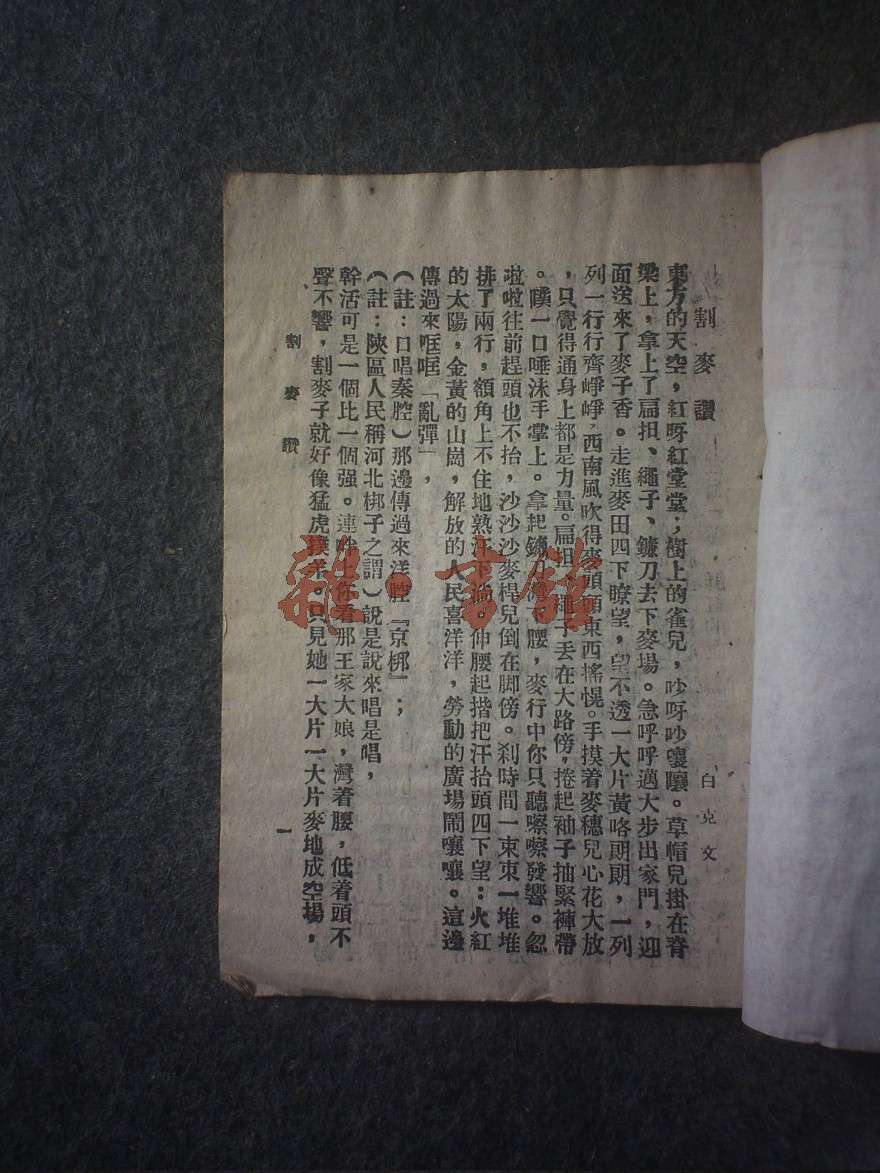 割麥讚
白克文
東方的天空，紅呀紅堂堂；樹上的雀兒，吵呀吵嚷嚷。草帽兒掛在脊
梁上，拿上了扁担、繩子、鐮刀去下麥場。急呼呼邁大步出家門，迎
面送來了麥子香。走進麥田四下瞭望，望不透一大片黃咯朗朗，一列
列一行行齊崢崢，西南風吹得麥頭頭東西搖愰。手摸着麥穗兒心花大放
，只覺得通身上都是力量。扁担、繩子丢在大路傍，捲起袖子抽緊褲帶
。噗一口唾沫手掌上。拿起鐮刀下腰，麥行中你只聽嚓嚓發響。忽
啦啦往前趕頭也不抬，沙沙沙麥桿兒倒在脚傍。刹時間一束束一堆堆
排了兩行，額角上不住地熱汗下淌。伸腰起揩把汗抬頭四下望：火紅
的太陽，金黃的山崗，解放的人民喜洋洋，勞動的廣場鬧嚷嚷。這邊
傳過來哐哐「亂彈」，
（註：口唱秦腔）那邊傳過來洋腔「京梆」；
（註：陝區人民稱河北梆子之謂）說是說來唱是唱，
幹活可是一個比一個强。連畔上你看那王家大娘，灣着腰，低着頭不
聲不響，割麥子就好像猛虎撲羊。只見她一大片一大片麥地成空場，
割麥讚
一
雜·書館